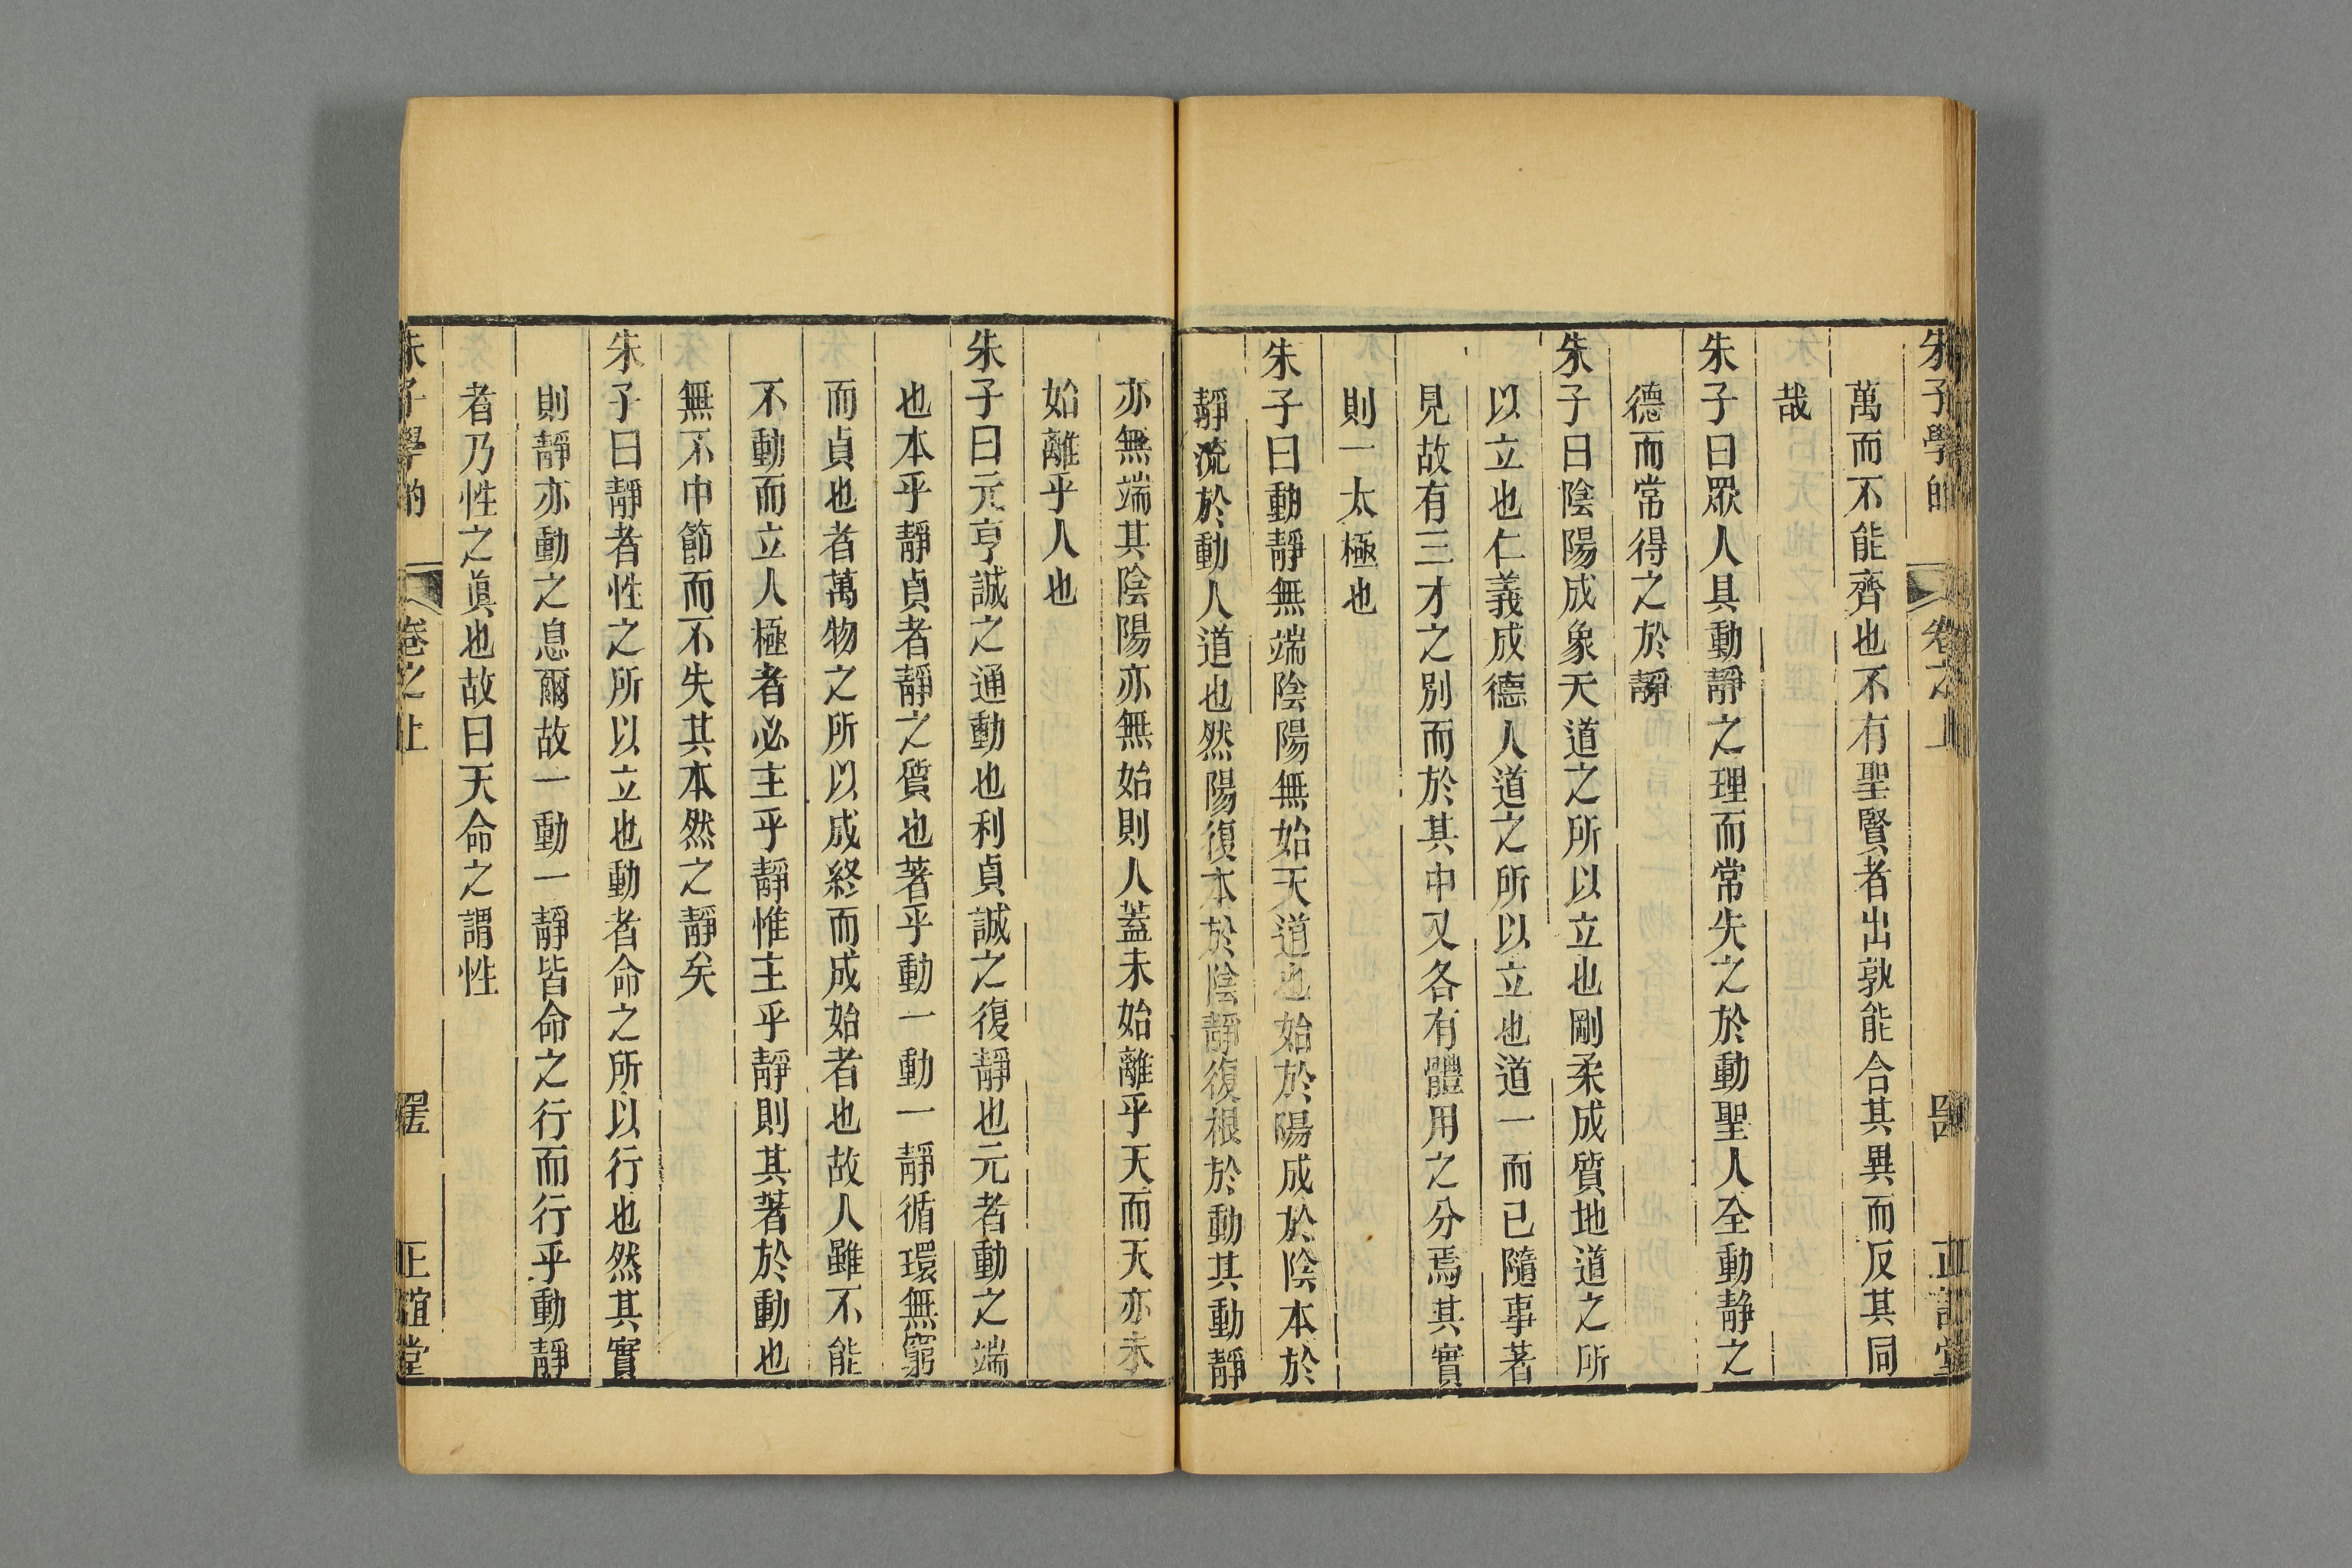 朱子學的 卷之上 正誼堂
萬而不能齊也不有聖賢者出孰能合其異而反其同
哉
朱子曰眾人具動靜之理而常失之於動聖人全動静之
德而常得之於靜
朱子曰陰陽成象天道之所以立也剛柔成質地道之所
以立也仁義成德人道之所以立也道一而已隨事著
見故有三才之別而於其中又各有體用之分焉其實
則一太極也
朱子曰動靜無端陰陽無始天道也始於陽成於陰本於
靜流於動人道也然陽復本於陰靜復根於動其動靜
亦無端其陰陽亦無始則人蓋未始離乎天而天亦未
始離乎人也
朱子曰元亨誠之通動也利貞誠之復靜也元者動之端
也本乎靜貞者靜之質也著乎動一動一靜循環無窮
而貞也者萬物之所以成終而成始者也故人雖不能
不動而立人極者必主乎靜惟主乎靜則其著於動也
無不中節而不失其本然之靜矣
朱子曰靜者性之所以立也動者命之所以行也然其實
則靜亦動之息爾故一動一靜皆命之行而行乎動靜
者乃性之眞也故曰天命之謂性
朱子學的 卷之上 正誼堂